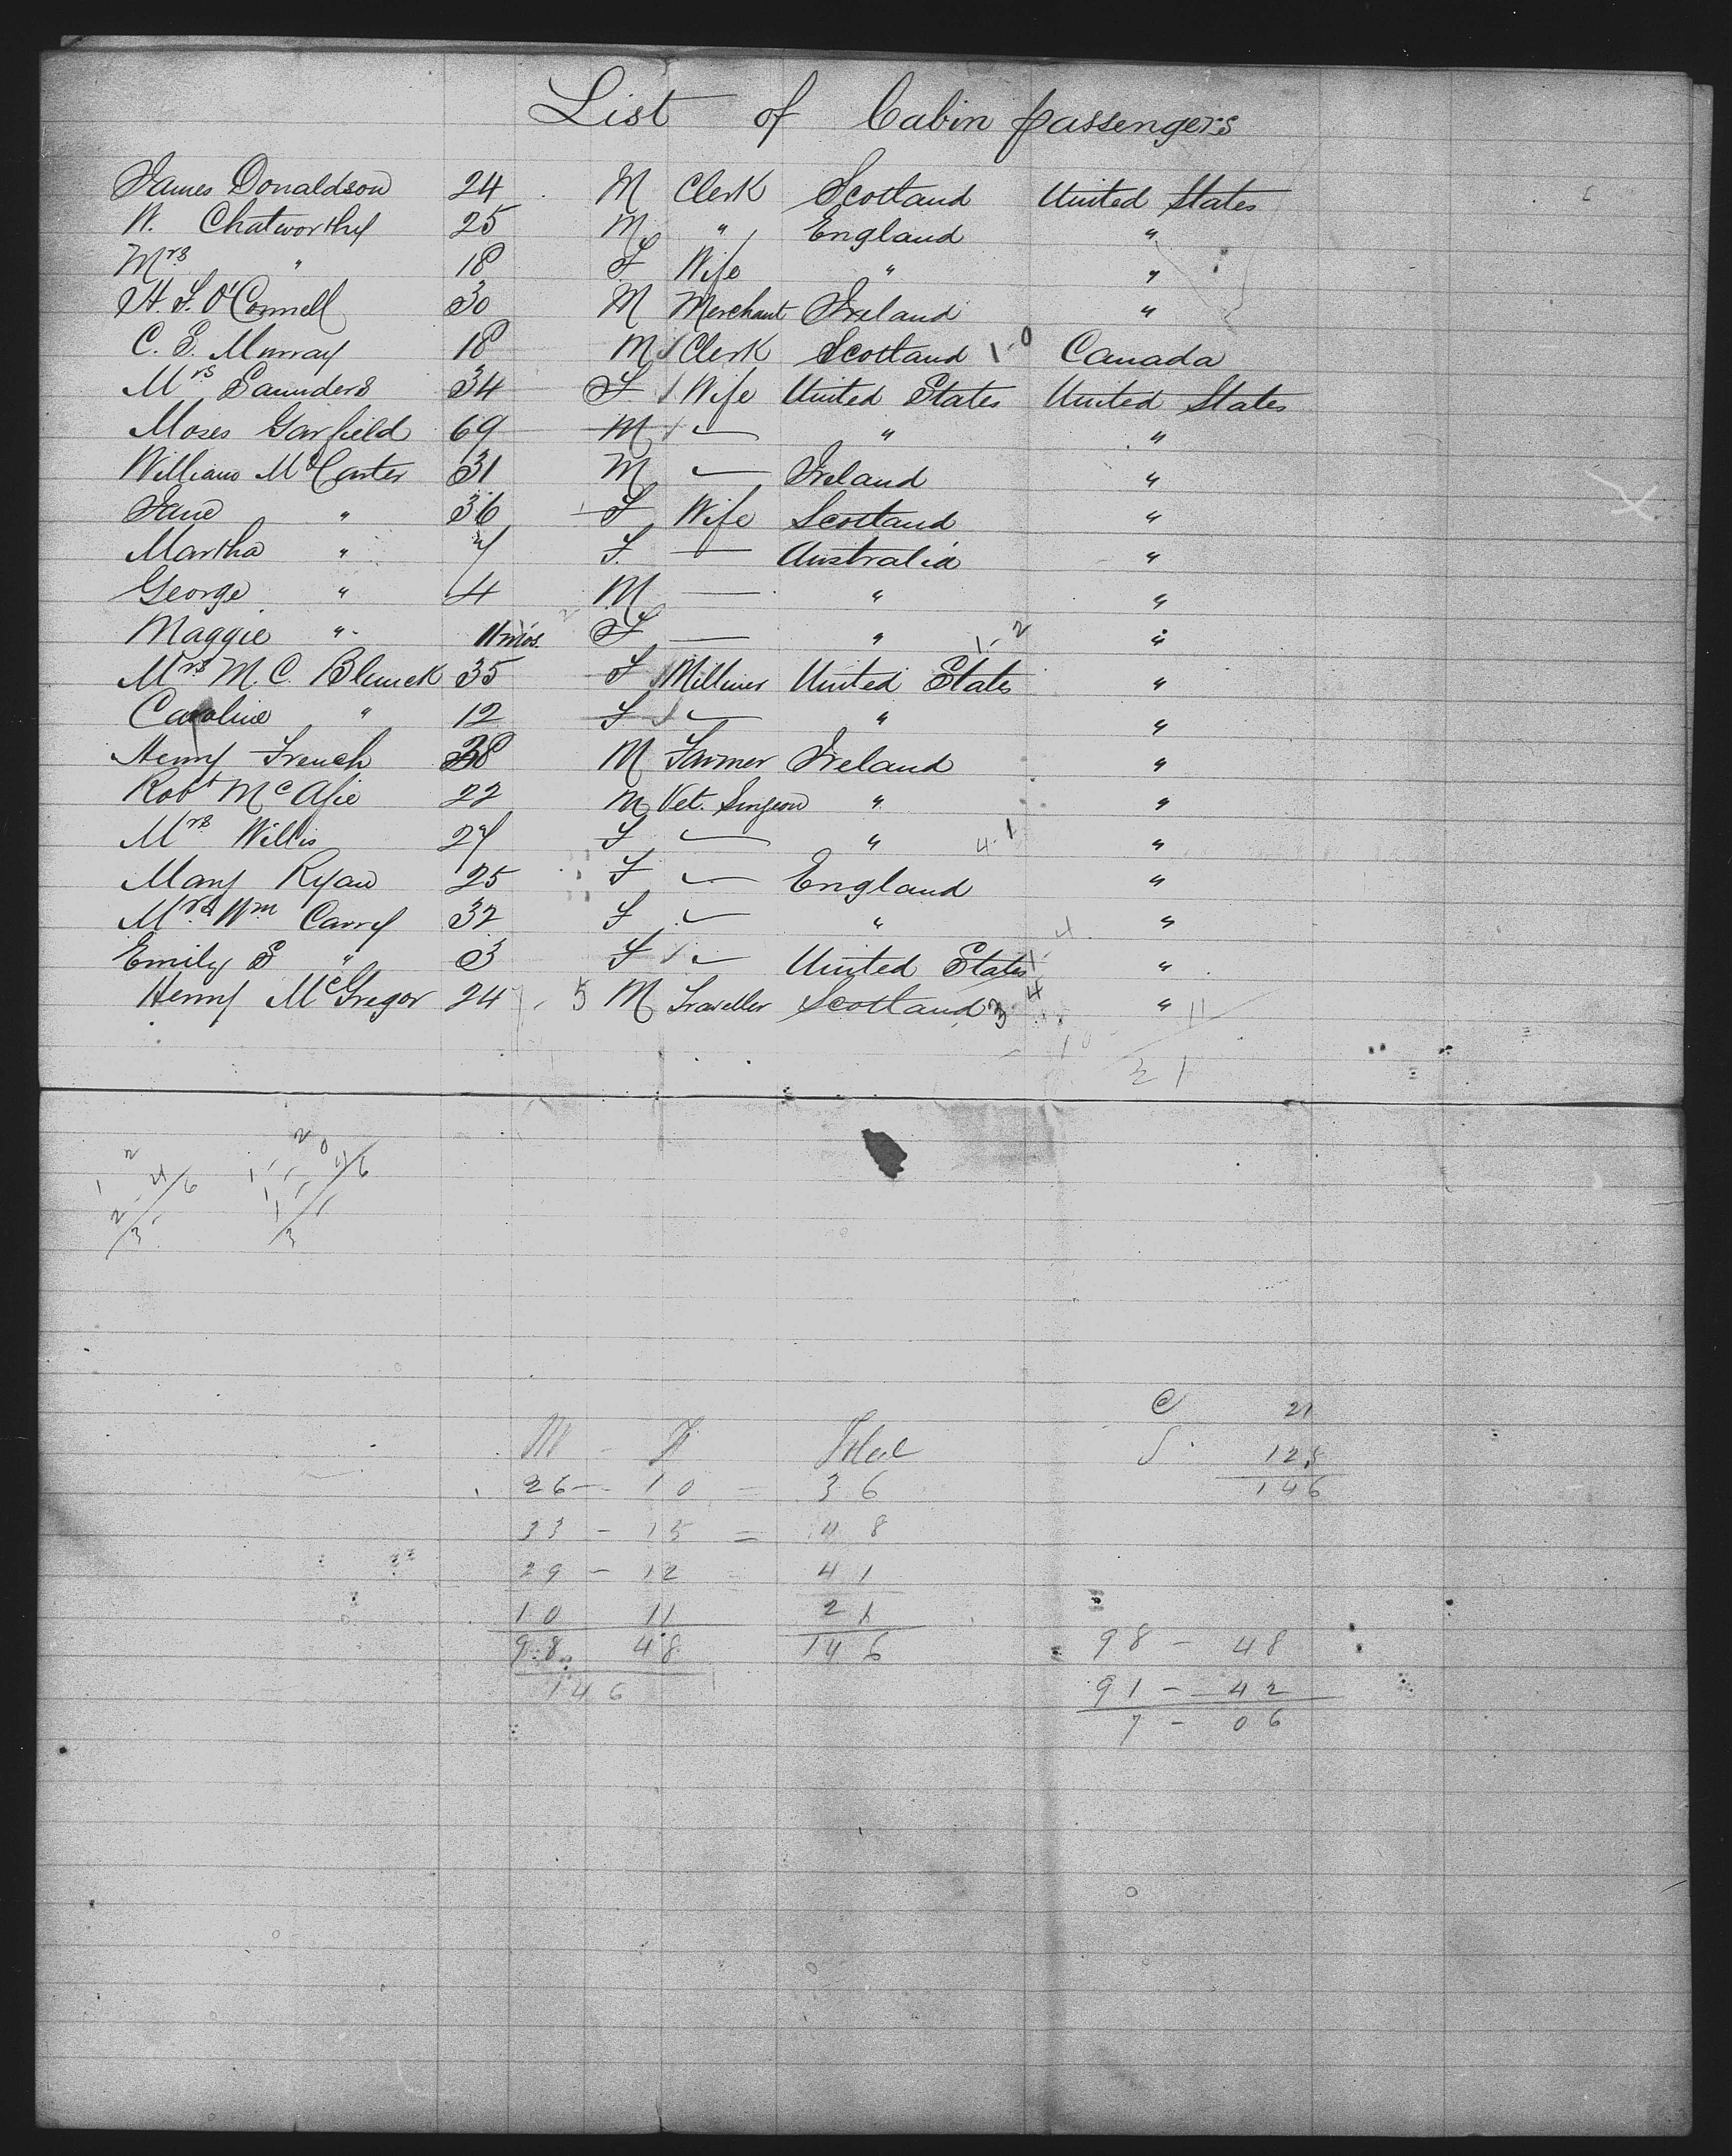 List of Cabin passengers
James Donaldson 24 M Clerk Scotland United States
W. Chatworthy 25 M " England "
Mrs " 18 F Wife " "
H. F. O'Connell 30 M Merchant Ireland "
C. E. Murray 18 M Clerk Scotland 1-0 Canada
Mrs Saunders 34 F Wife United States United States
Moses Garfield 69 M — " "
William McCarter 31 M — Ireland "
Jane " 36 F Wife Scotland "
Martha " 7 F. — Australia "
George " 4 M — " "
Maggie " 11 mos. F — " 1-2 "
Mrs M. C. Blanck 35 F Milliner United States "
Caroline " 12 F — " "
Henry French 38 M Farmer Ireland "
Robt McAfie 22 M Vet. Surgeon " "
Mrs Willis 27 F — " 4-1 "
Mary Ryan 25 F — England "
Mrs Wm Carry 32 F — " "
Emily E " 3 F — United States "
Henry McGregor 24 5 M Traveller Scotland 3 4 "
11
10
21
C 21
M - F Total
S. 125
26 - 10 = 36
146
33 - 15 = 48
29 - 12 = 41
10 11 21
98 48 146
98 - 48
146
91 - 42
7 - 06